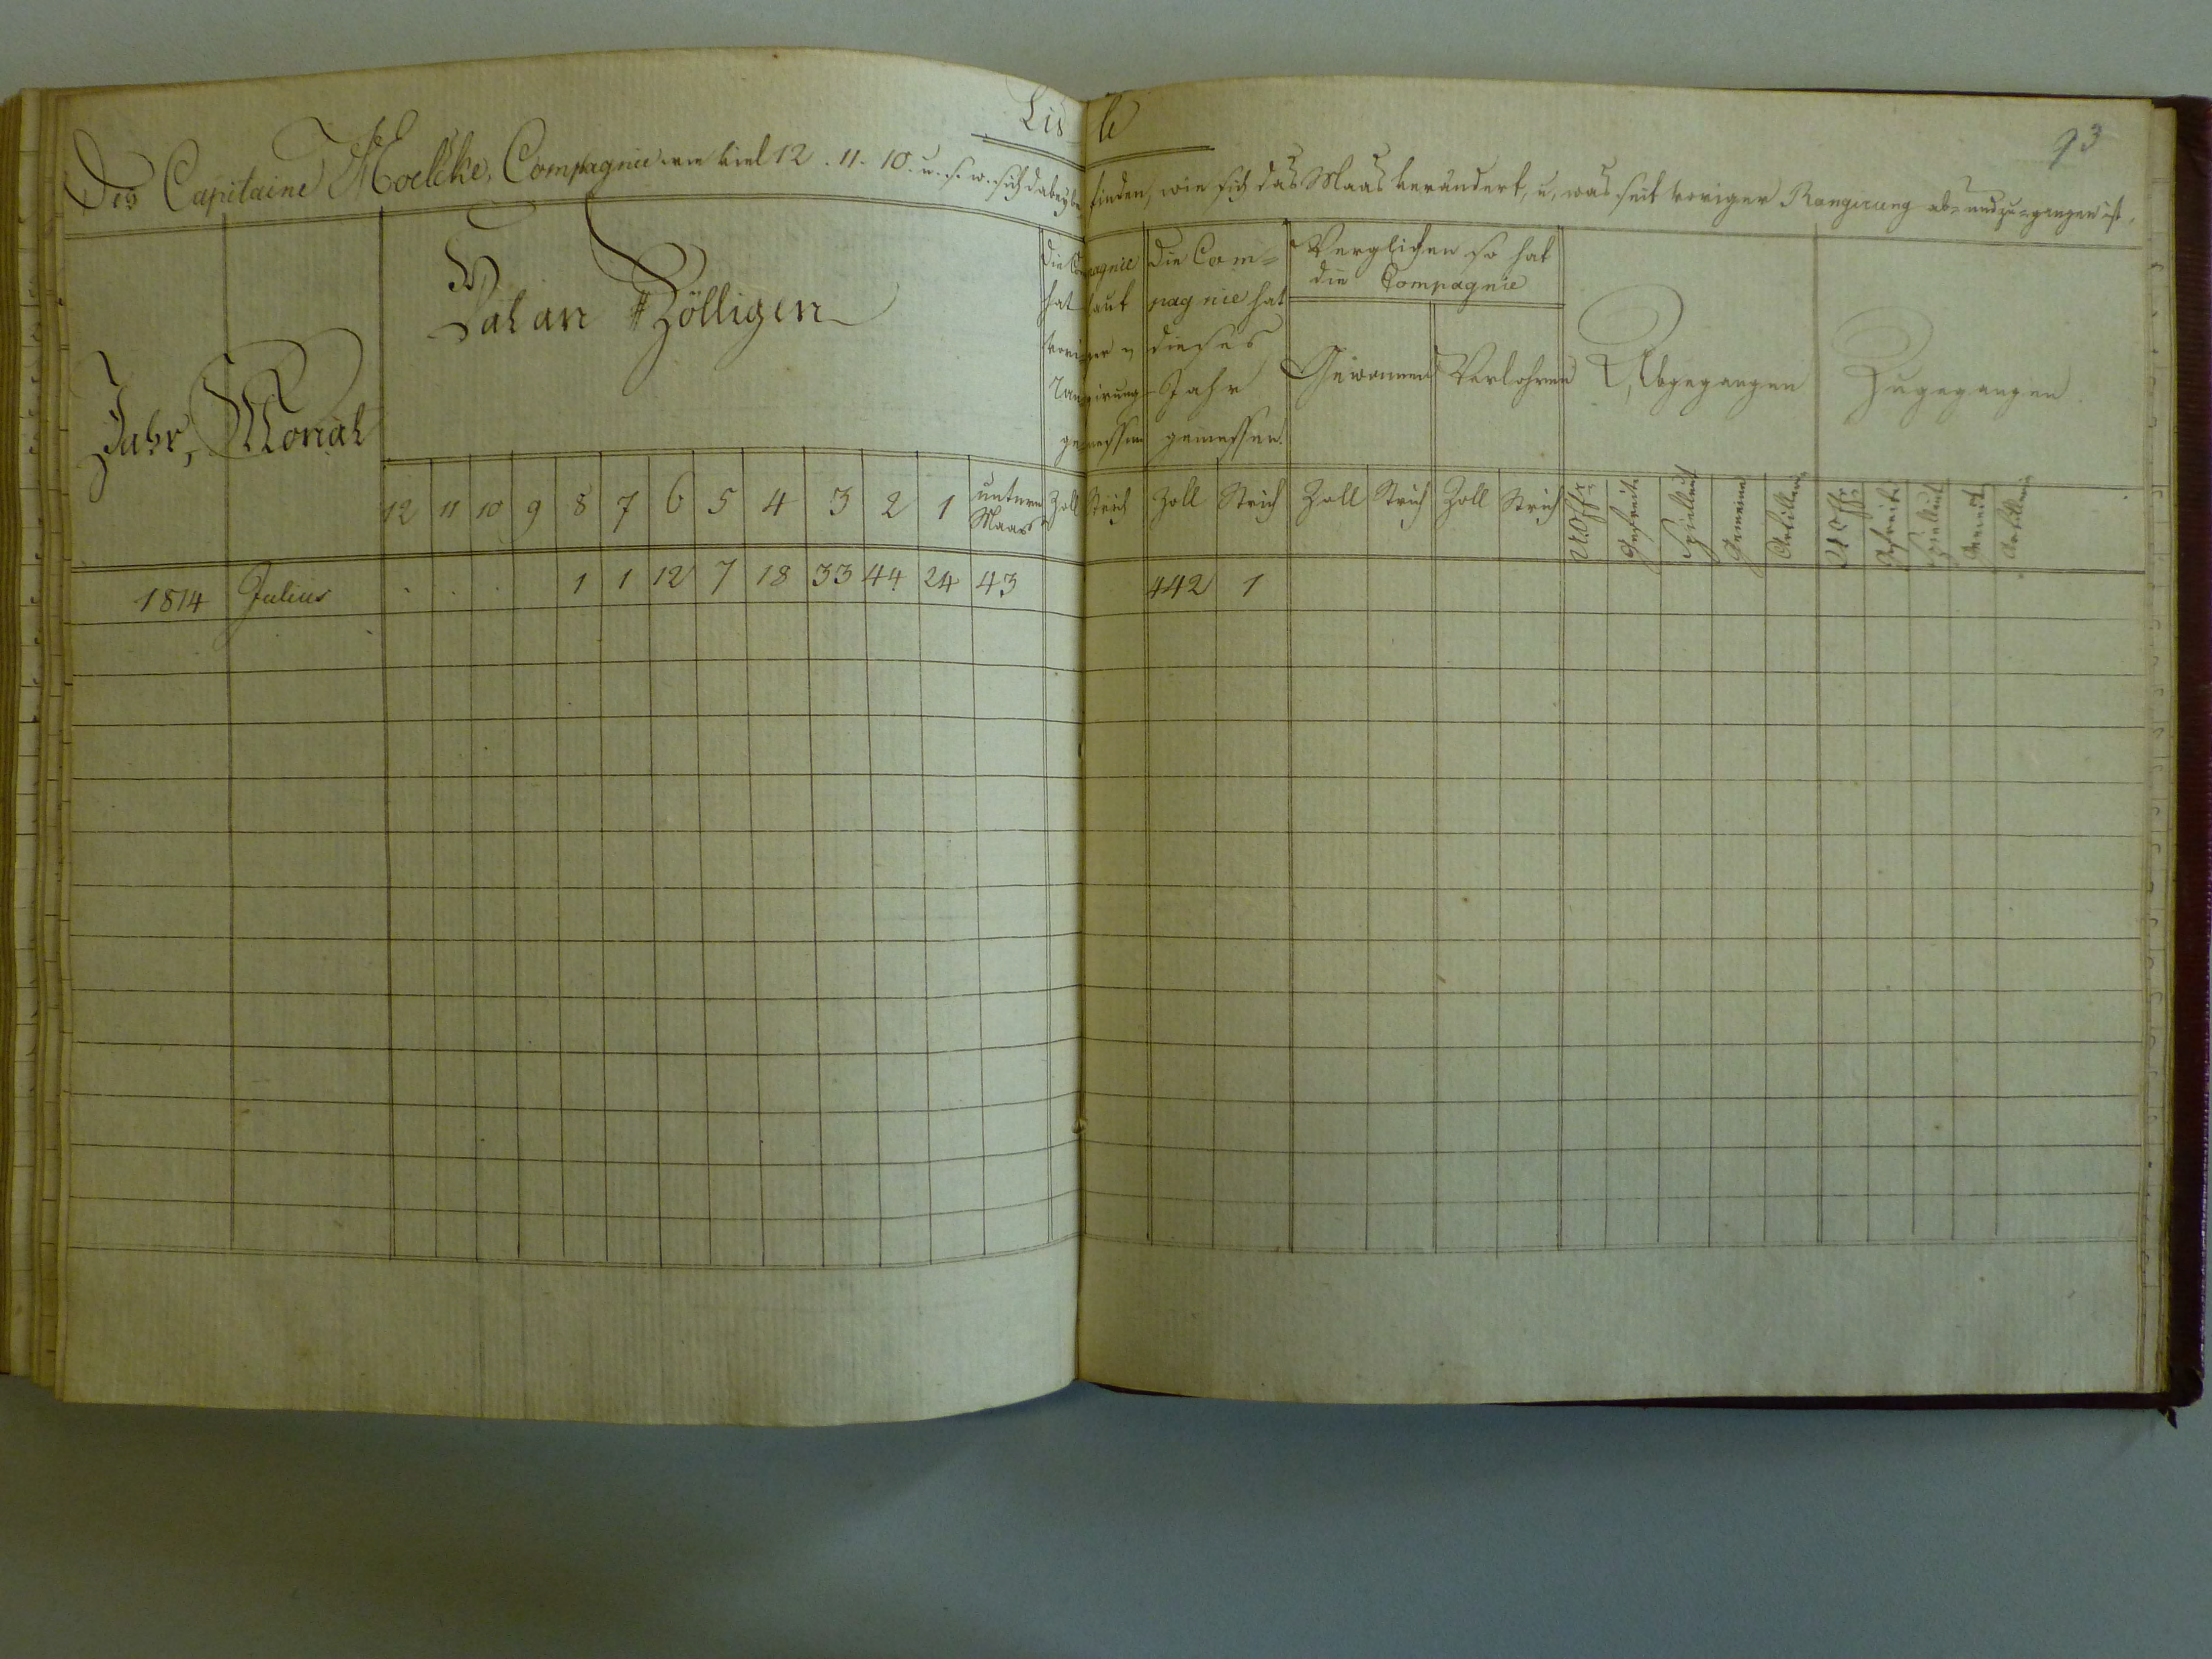 Liste
93
Des Capitaine Moelcke, Compagnie wie viel 12. 11. 10. u. s. w. sich dabey befinden, wie sich das Maas verändert, u, was seit voriger Rangirung ab- und zu-gangen ist,
Jahr, Monat
Hat an Zölligen
Die Compagnie hat laut voriger Rangirung gemessen
Die Com-
pagnie hat
dieses
Jahr
gemessen.
Verglichen so hat
die Compagnie
Gewonnen Verlohren
Abgegangen
Zugegangen
12 11 10 9 8 7 6 5 4 3 2 1 unterm Maas Zoll Strich Zoll Strich Zoll Strich Zoll Strich UOffr Gefreite Spielleut Gemeine Artillerie UOffr Gefreite Spielleut Gemeine Artillerie
1814 Julius . . . 1 1 12 7 18 33 44 24 43 442 1